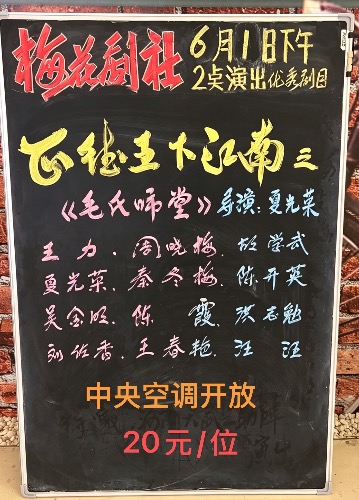 梅花剧社
6月1日下午
2点演出优秀剧目
正德王下江南三
《毛氏师堂》导演:夏光荣
王力.周晓梅.胡学武
夏光荣.秦冬梅.陈开英
吴金明.陈霞.洪志勉
刘佐香.王春艳.汪汪
中央空调开放
20元/位